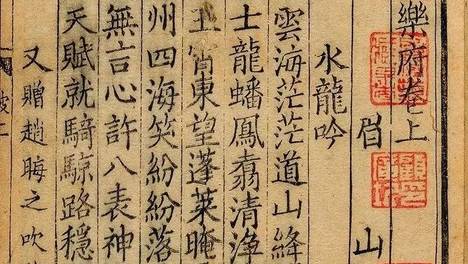 樂府卷上
眉山
水龍吟
雲海茫茫道山絳
士龍蟠鳳翥清淨
霄東望蓬萊晻
州四海笑紛紛落
無言心許八表神
天賦就騎鯨路穩
又贈趙晦之吹
坡二